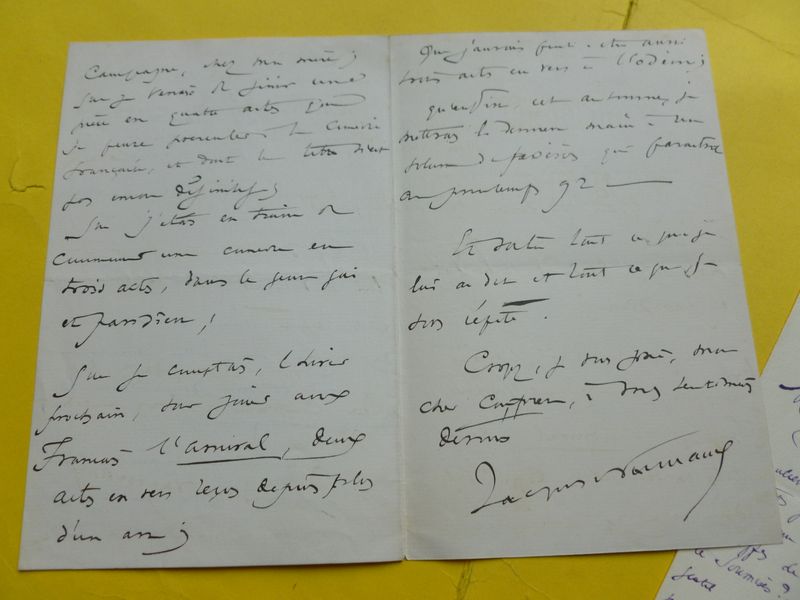 Campagne, chez ma mère ;
Que je venais de finir une
pièce en quatre actes que
je pense présenter à la Comédie
française, et dont le titre n'est
pas encore définitif ;
Que j'étais en train de
commencer une comédie en
trois actes, dans le genre gai
et parisien ;
Que je comptais, l'hiver
prochain, être joué aux
Français l'amiral, deux
actes en vers reçus depuis plus
d'un an ;
Que j'aurais peut-être aussi
trois actes en vers à l'Odéon ;
qu'enfin, cet automne, je
mettrais la dernière main à un
volume de poésies qui paraîtra
au printemps 92 —
Et voilà tout ce que je
lui ai dit et tout ce que je
vous répète.
Croyez, je vous prie, mon
cher, à mes sentiments
dévoués
Jacques Normand